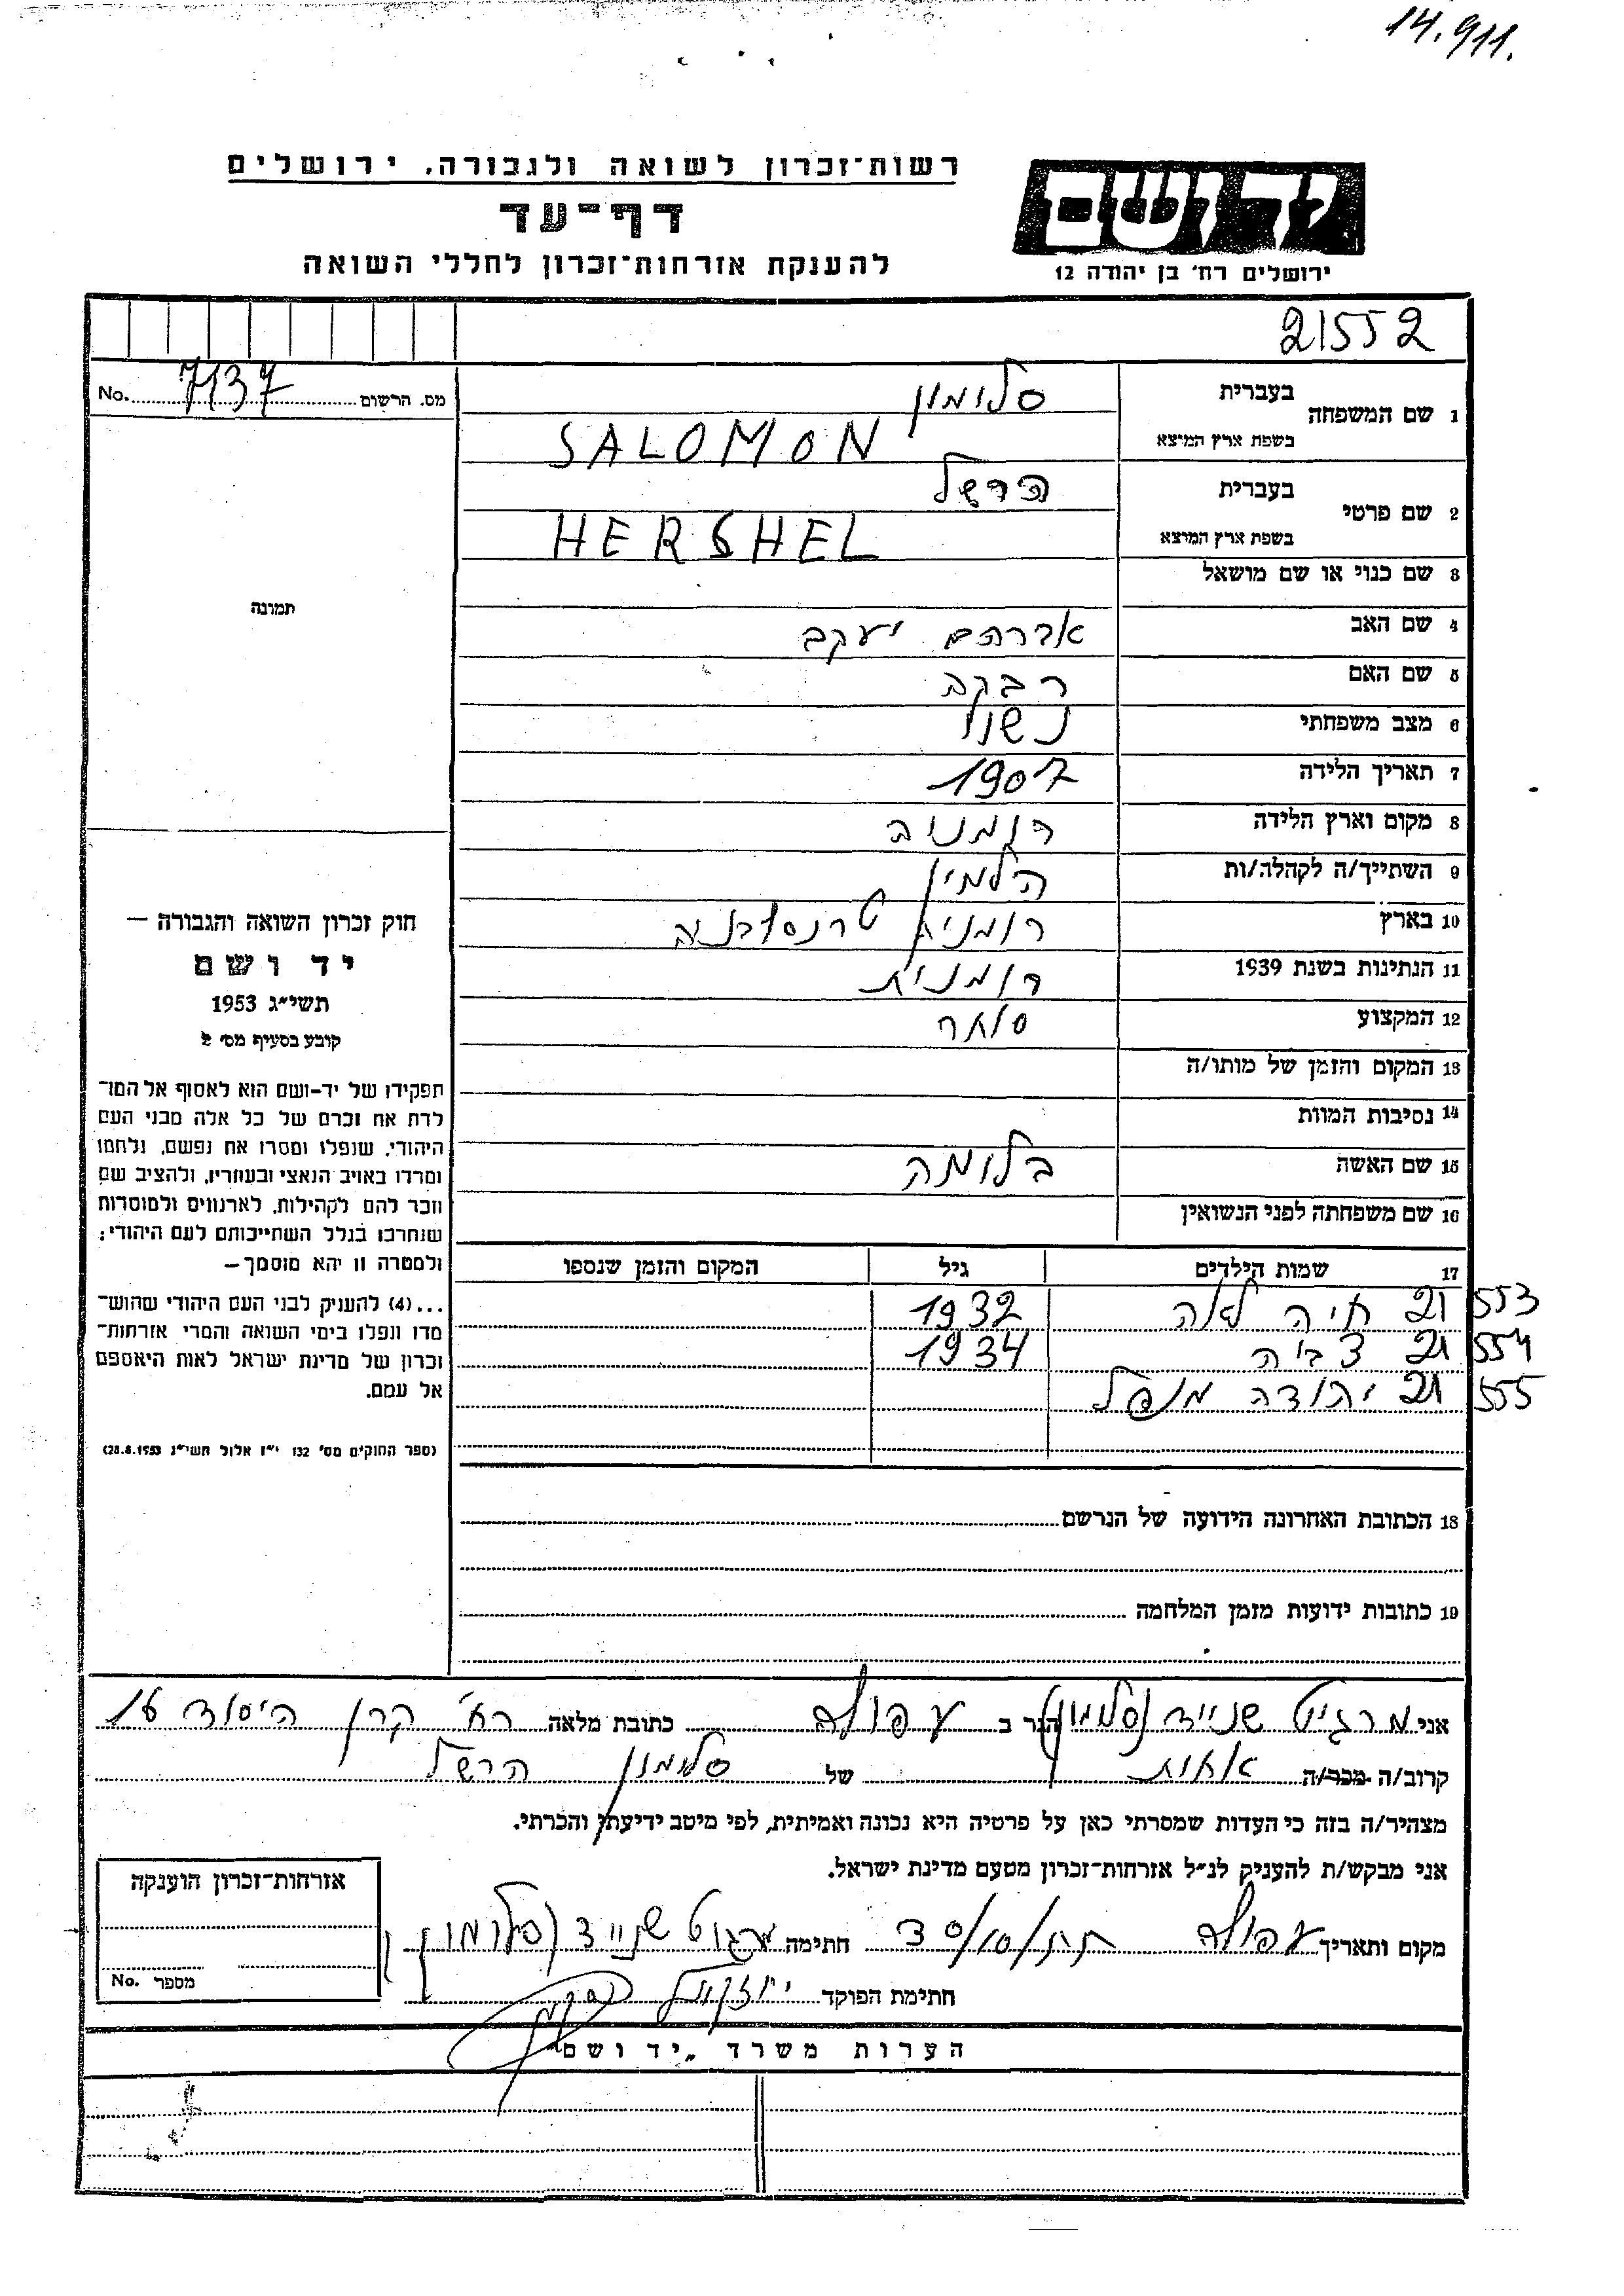 14.911.
רשות־זכרון לשואה ולגבורה, ירושלים
דף־עד
להענקת אזרחות־זכרון לחללי השואה
יד ושם
ירושלים רח׳ בן יהודה 12
21552
No. 7137 מס. הרשום
1 שם המשפחה בעברית סלומון
בשפת ארץ המוצא SALOMON
2 שם פרטי בעברית הרשל
בשפת ארץ המוצא HERSHEL
3 שם כנוי או שם מושאל
תמונה
4 שם האב אברהם יעקב
5 שם האם רבקה
6 מצב משפחתי נשוי
7 תאריך הלידה 1907
8 מקום וארץ הלידה רומניה
9 השתייך/ה לקהלה/ות
10 בארץ רומניה טרנסילבניה
11 הנתינות בשנת 1939 רומנית
12 המקצוע סוחר
13 המקום והזמן של מותו/ה
14 נסיבות המוות
15 שם האשה בלומה
16 שם משפחתה לפני הנשואין
17 שמות הילדים גיל המקום והזמן שנספו
21553 חיה לאה 1932
21554 צביה 1934
21555 יהודה מנדל
חוק זכרון השואה והגבורה —
יד ושם
תשי״ג 1953
קובע בסעיף מס׳ 2
תפקידו של יד-ושם הוא לאסוף אל המו־
לדת את זכרם של כל אלה מבני העם
היהודי, שנפלו ומסרו את נפשם, נלחמו
ומרדו באויב הנאצי ובעוזריו, ולהציב שם
וזכר להם לקהילות, לארגונים ולמוסדות
שנחרבו בגלל השתייכותם לעם היהודי:
ולמטרה זו יהא מוסמך —
...(4) להעניק לבני העם היהודי שהוש־
מדו ונפלו בימי השואה והמרי אזרחות־
זכרון של מדינת ישראל לאות היאספם
אל עמם.
(ספר החוקים מס׳ 132 י״ז אלול תשי״ג 28.8.1953)
18 הכתובת האחרונה הידועה של הנרשם
19 כתובות ידועות מזמן המלחמה
אני מרגיט שנייד (סלומון) הגר ב עפולה כתובת מלאה רח׳ קרן היסוד 16
קרוב/ה מכר/ה אחות של סלומון הרשל
מצהיר/ה בזה כי העדות שמסרתי כאן על פרטיה היא נכונה ואמיתית, לפי מיטב ידיעתי והכרתי.
אני מבקש/ת להעניק לנ״ל אזרחות-זכרון מטעם מדינת ישראל.
מקום ותאריך עפולה חתימה מרגיט שנייד (סלומון)
חתימת הפוקד
אזרחות־זכרון הוענקה
No. מספר
הערות משרד „יד ושם"